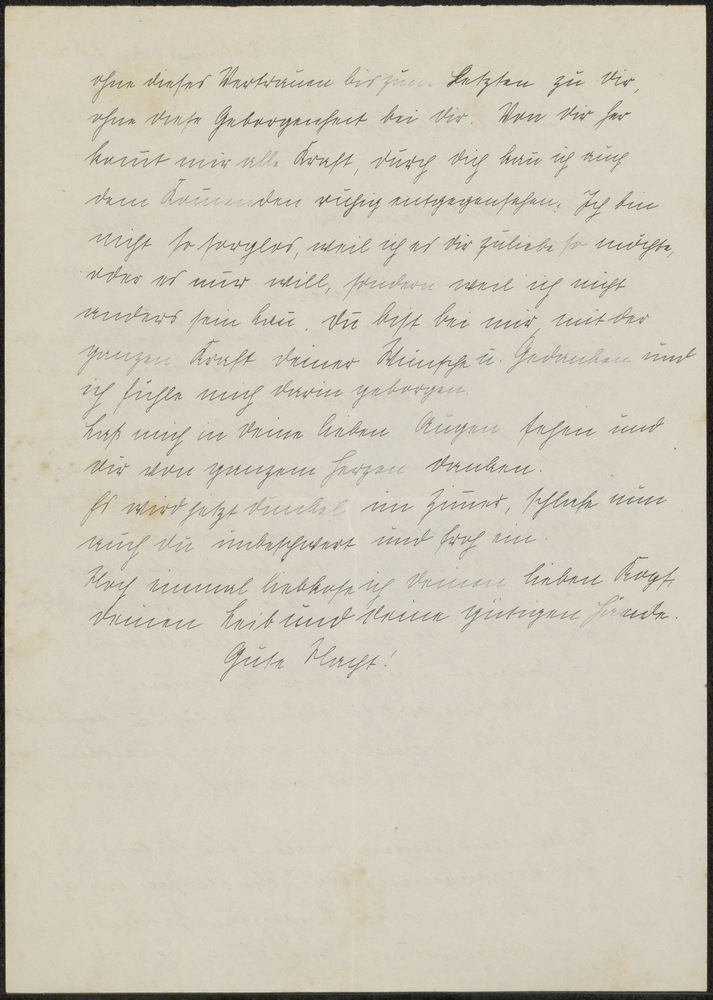 ohne dieses Vertrauen bis zum Letzten zu dir,
ohne diese Geborgenheit bei dir. Von dir her
kom̅t mir alle Kraft, durch dich kan̅ ich auch
dem Kom̅enden ruhig entgegensehen. Ich bin
nicht so sorglos, weil ich es dir zuliebe so möchte,
oder es nur will, sondern weil ich nicht
anders sein kan̅. Du bist bei mir mit der
ganzen Kraft deiner Wünsche u. Gedanken und
ich fühle mich darin geborgen.
Laß mich in deine lieben Augen sehen und
dir von ganzem Herzen danken.
Es wird jetzt dunkel im Zim̅er, schlafe nun
auch du unbeschwert und froh ein.
Noch einmal liebkose ich deinen lieben Kopf,
deinen Leib und deine gütigen Hände.
Gute Nacht!